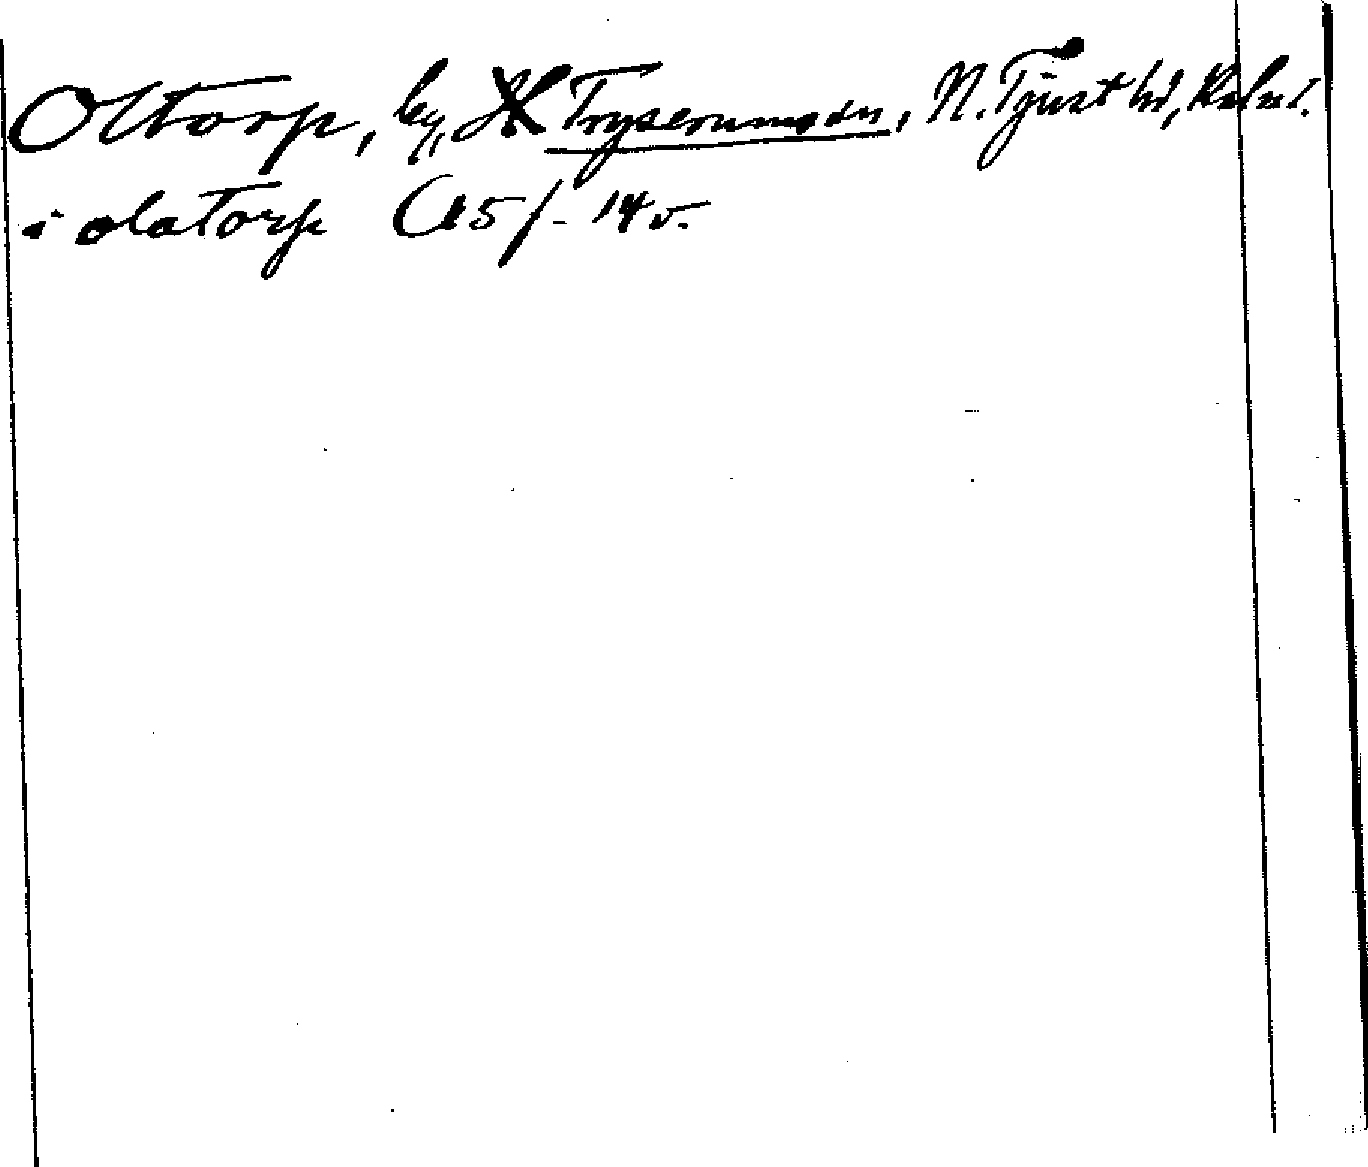 Oltorp, by, Tryserums sn, N. Tjust hd, Kalm l.
i olatorp C 15/- 14 v.